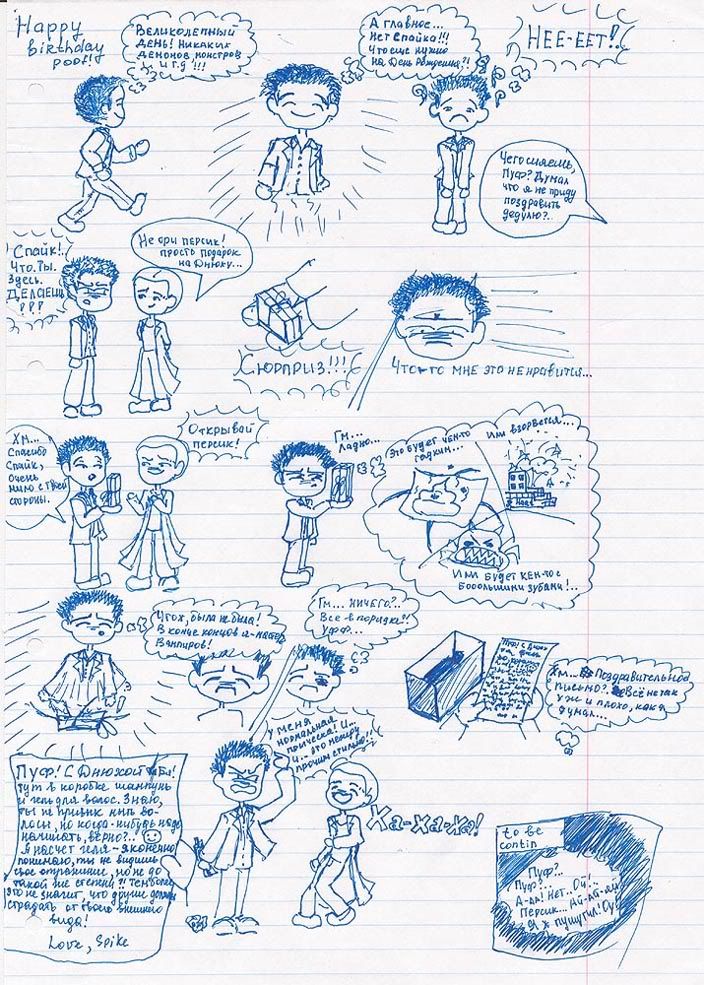 Happy
birthday
poof!
Великолепный
день! Никаких
демонов, монстров
и т.д !!!
А главное...
Нет Спайка!!!
Что ещё нужно
на День Рождения?!
НЕЕ-ЕЕТ!
Чего сияешь,
Пуф? Думал
что я не приду
поздравить
дедулю?..
Спайк!
Что. Ты.
Здесь.
ДЕЛАЕШЬ
???
Не ори персик!
просто подарок
на Днюху...
Сюрприз!!!
Что-то мне это не нравится...
Хм...
Спасибо
Спайк,
очень
мило с твоей
стороны.
Открывай
персик!
Гм...
Ладно...
Это будет чем-то
гадким...
Или взорвется...
Или будет кем-то с
бооольшими зубами!..
Угох, была не была!
В конце концов я - мастер
Вампиров!
Гм... ничего?..
Все в порядке?!
Уффф...
Хм... Поздравительное
письмо? Всё не так
уж и плохо, как я
думал...
Пуф! С Днюхой тебя!
тут в коробке шампунь
и гель для волос. Знаю,
ты не привык мыть во-
лосы, но когда-нибудь надо
начинать, верно?..
А насчет геля - я конечно
понимаю, ты не видишь
свое отражение, но не до
такой же степени?! Тем более
это не значит, что другие должны
страдать от твоего внешнего
вида!
Love, Spike
У меня
нормальная
прическа! И...
и... это не
прочим стильно!!
Ха-ха-ха!
to be
contin
Пуф?..
Пуф?...
А-аа! Нет.. Ой!..
Персик... Ай-ай-ай
Я ж пушутил! Оу!